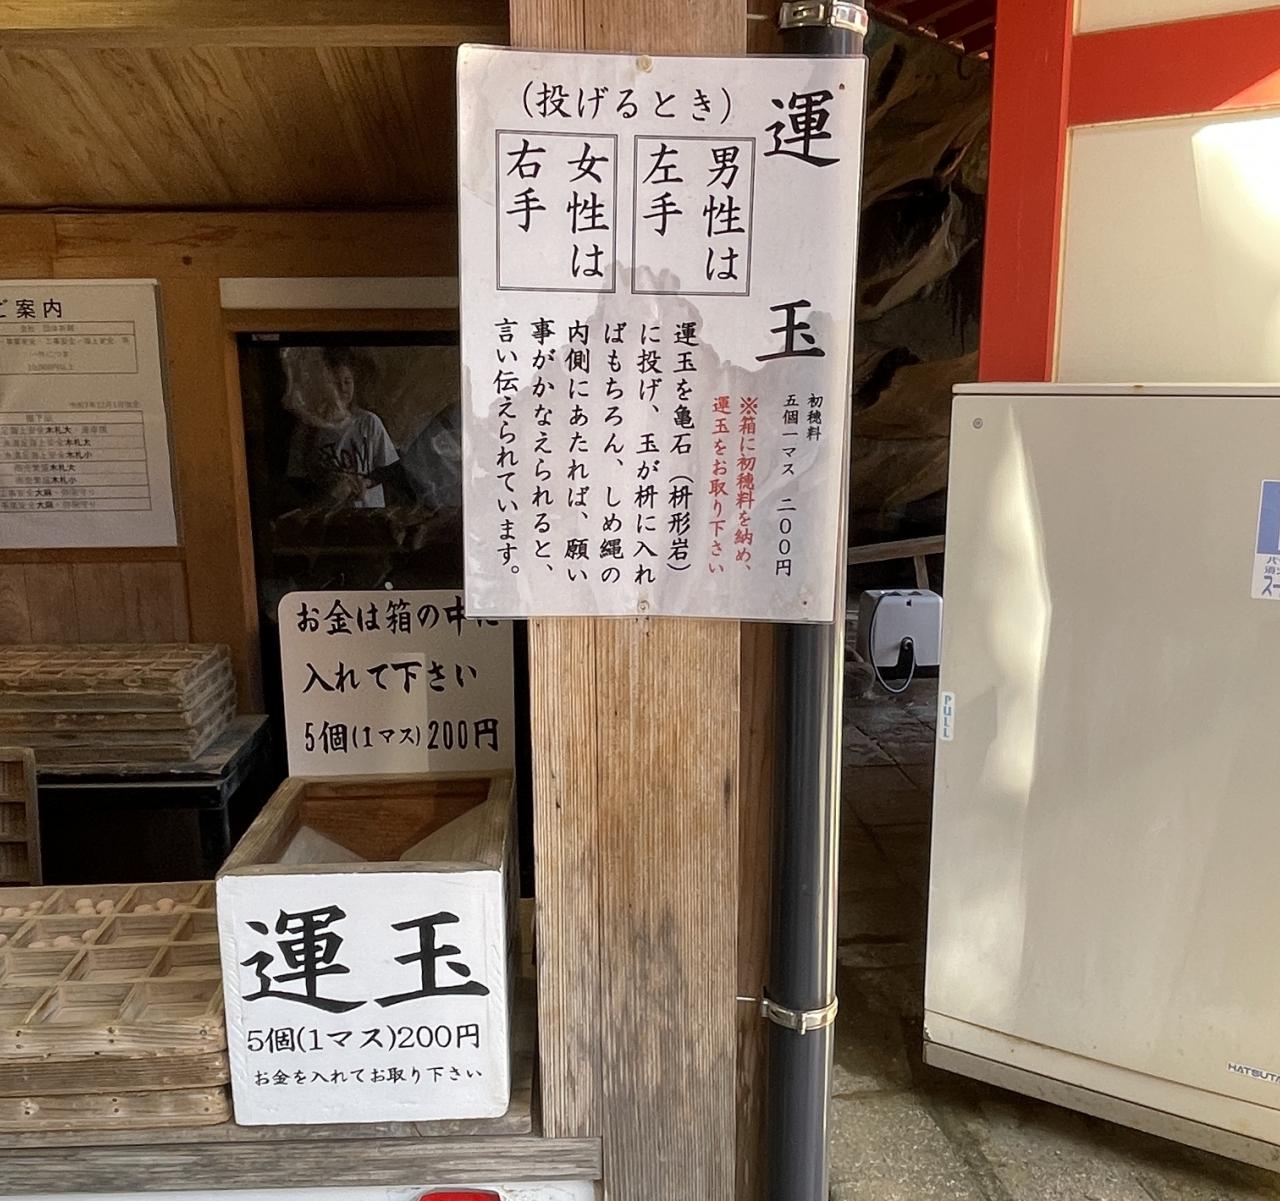 運玉
初穂料
五個一マス 二〇〇円
※箱に初穂料を納め、
運玉をお取り下さい
（投げるとき）
男性は
左手
女性は
右手
運玉を亀石（枡形岩）
に投げ、玉が枡に入れ
ばもちろん、しめ縄の
内側にあたれば、願い
事がかなえられると、
言い伝えられています。
ご案内
お金は箱の中に
入れて下さい
5個(1マス)200円
運玉
5個(1マス)200円
お金を入れてお取り下さい
PULL